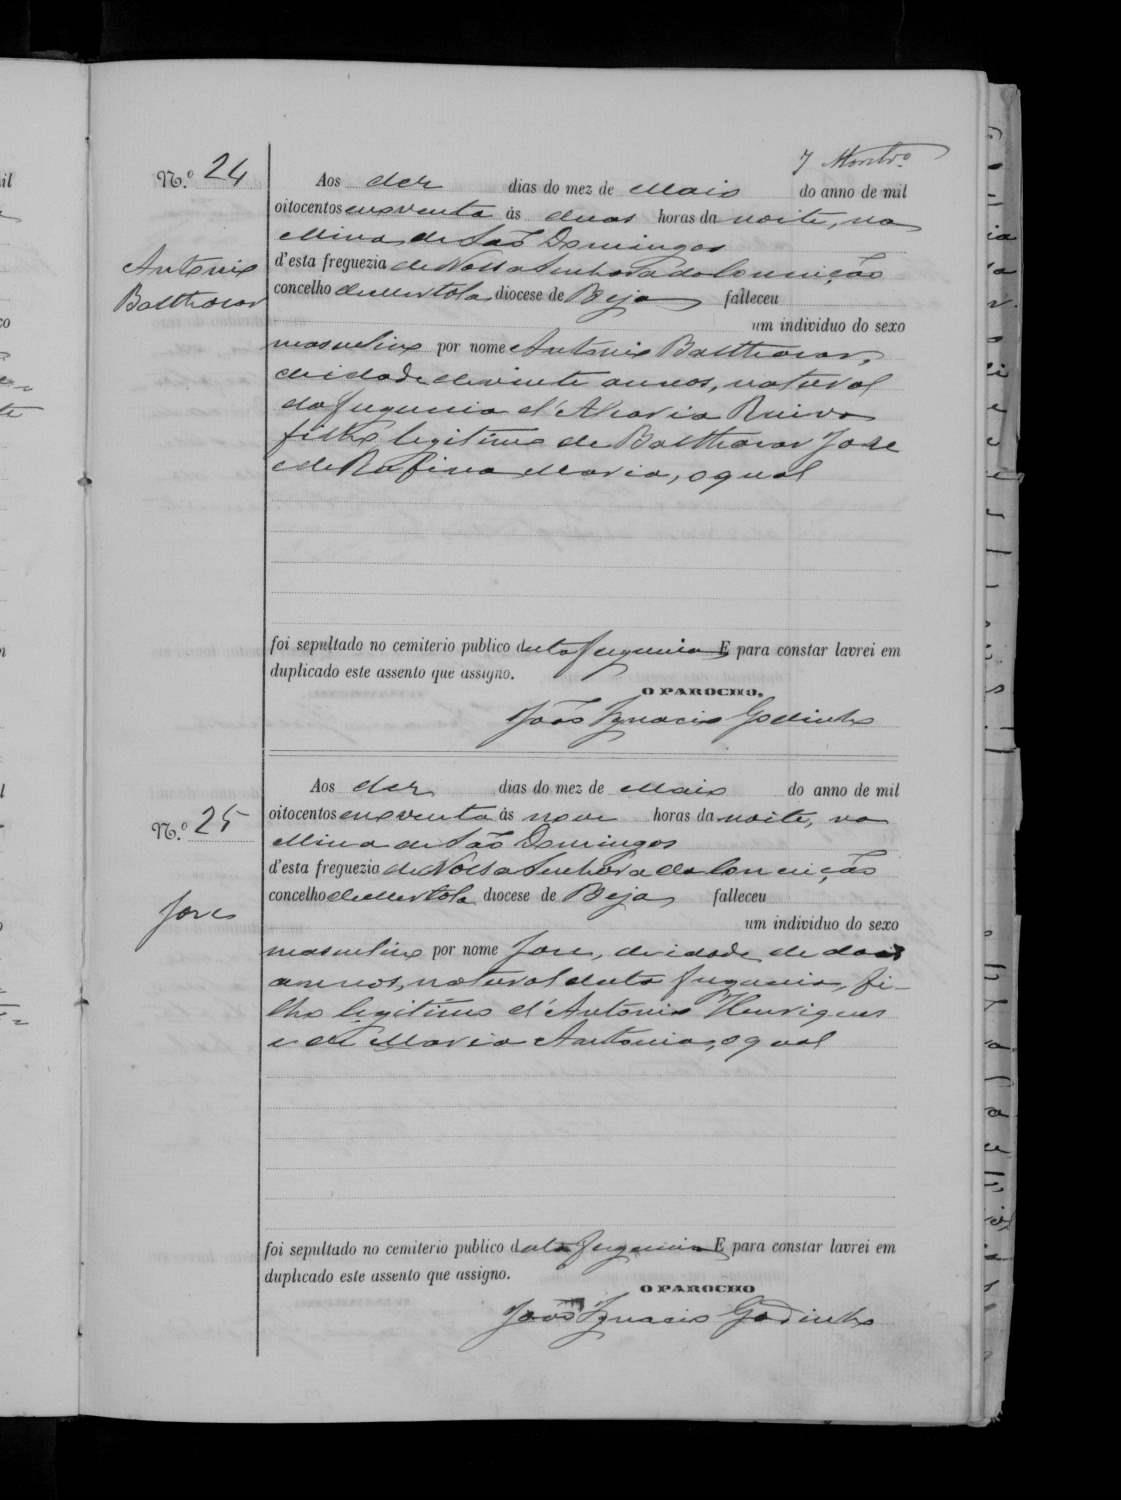 7
N.º 24
Aos dez dias do mez de Maio do anno de mil
oitocentos enoventa ás duas horas da noite, na
Mina de São Domingos
d'esta freguezia de Nossa Senhora da Conceição
Antonio
Balthazar
concelho de Mertola diocese de Beja falleceu
um individuo do sexo
masculino por nome Antonio Balthazar,
de idade de vinte annos, natural
da freguezia d'Alcaria Ruiva
filho legitimo de Balthazar José
e de Rufina Maria, o qual
foi sepultado no cemiterio publico desta freguezia E para constar lavrei em
duplicado este assento que assigno.
O PAROCHO,
João Ignacio Godinho
Aos dez dias do mez de Maio do anno de mil
N.º 25
oitocentos enoventa ás nove horas da noite, na
Mina de São Domingos
d'esta freguezia de Nossa Senhora da Conceição
concelho de Mertola diocese de Beja falleceu
José
um individuo do sexo
masculino por nome José, de idade de dois
annos, natural desta freguezia, fi-
lho legitimo d'Antonio Henriques
e de Maria Antonia, o qual
foi sepultado no cemiterio publico desta freguezia E para constar lavrei em
duplicado este assento que assigno.
O PAROCHO
João Ignacio Godinho